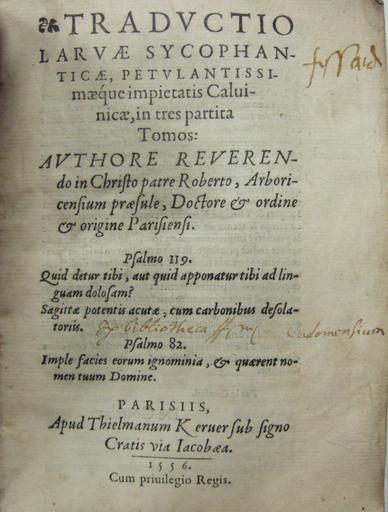 TRADVCTIO
LARVÆ SYCOPHAN-
TICÆ, PETVLANTISSI-
mæque impietatis Calui-
nicæ, in tres partita
Tomos:
AVTHORE REVEREN-
do in Christo patre Roberto, Arbori-
censium præsule, Doctore & ordine
& origine Parisiensi.
Psalmo 119.
Quid detur tibi, aut quid apponatur tibi ad lin-
guam dolosam?
Sagittæ potentis acutæ, cum carbonibus desola-
toriis.
ex bibliotheca
Psalmo 82.
Imple facies eorum ignominia, & quærent no-
men tuum Domine.
PARISIIS,
Apud Thielmanum Keruer sub signo
Cratis via Iacobæa.
1556.
Cum priuilegio Regis.